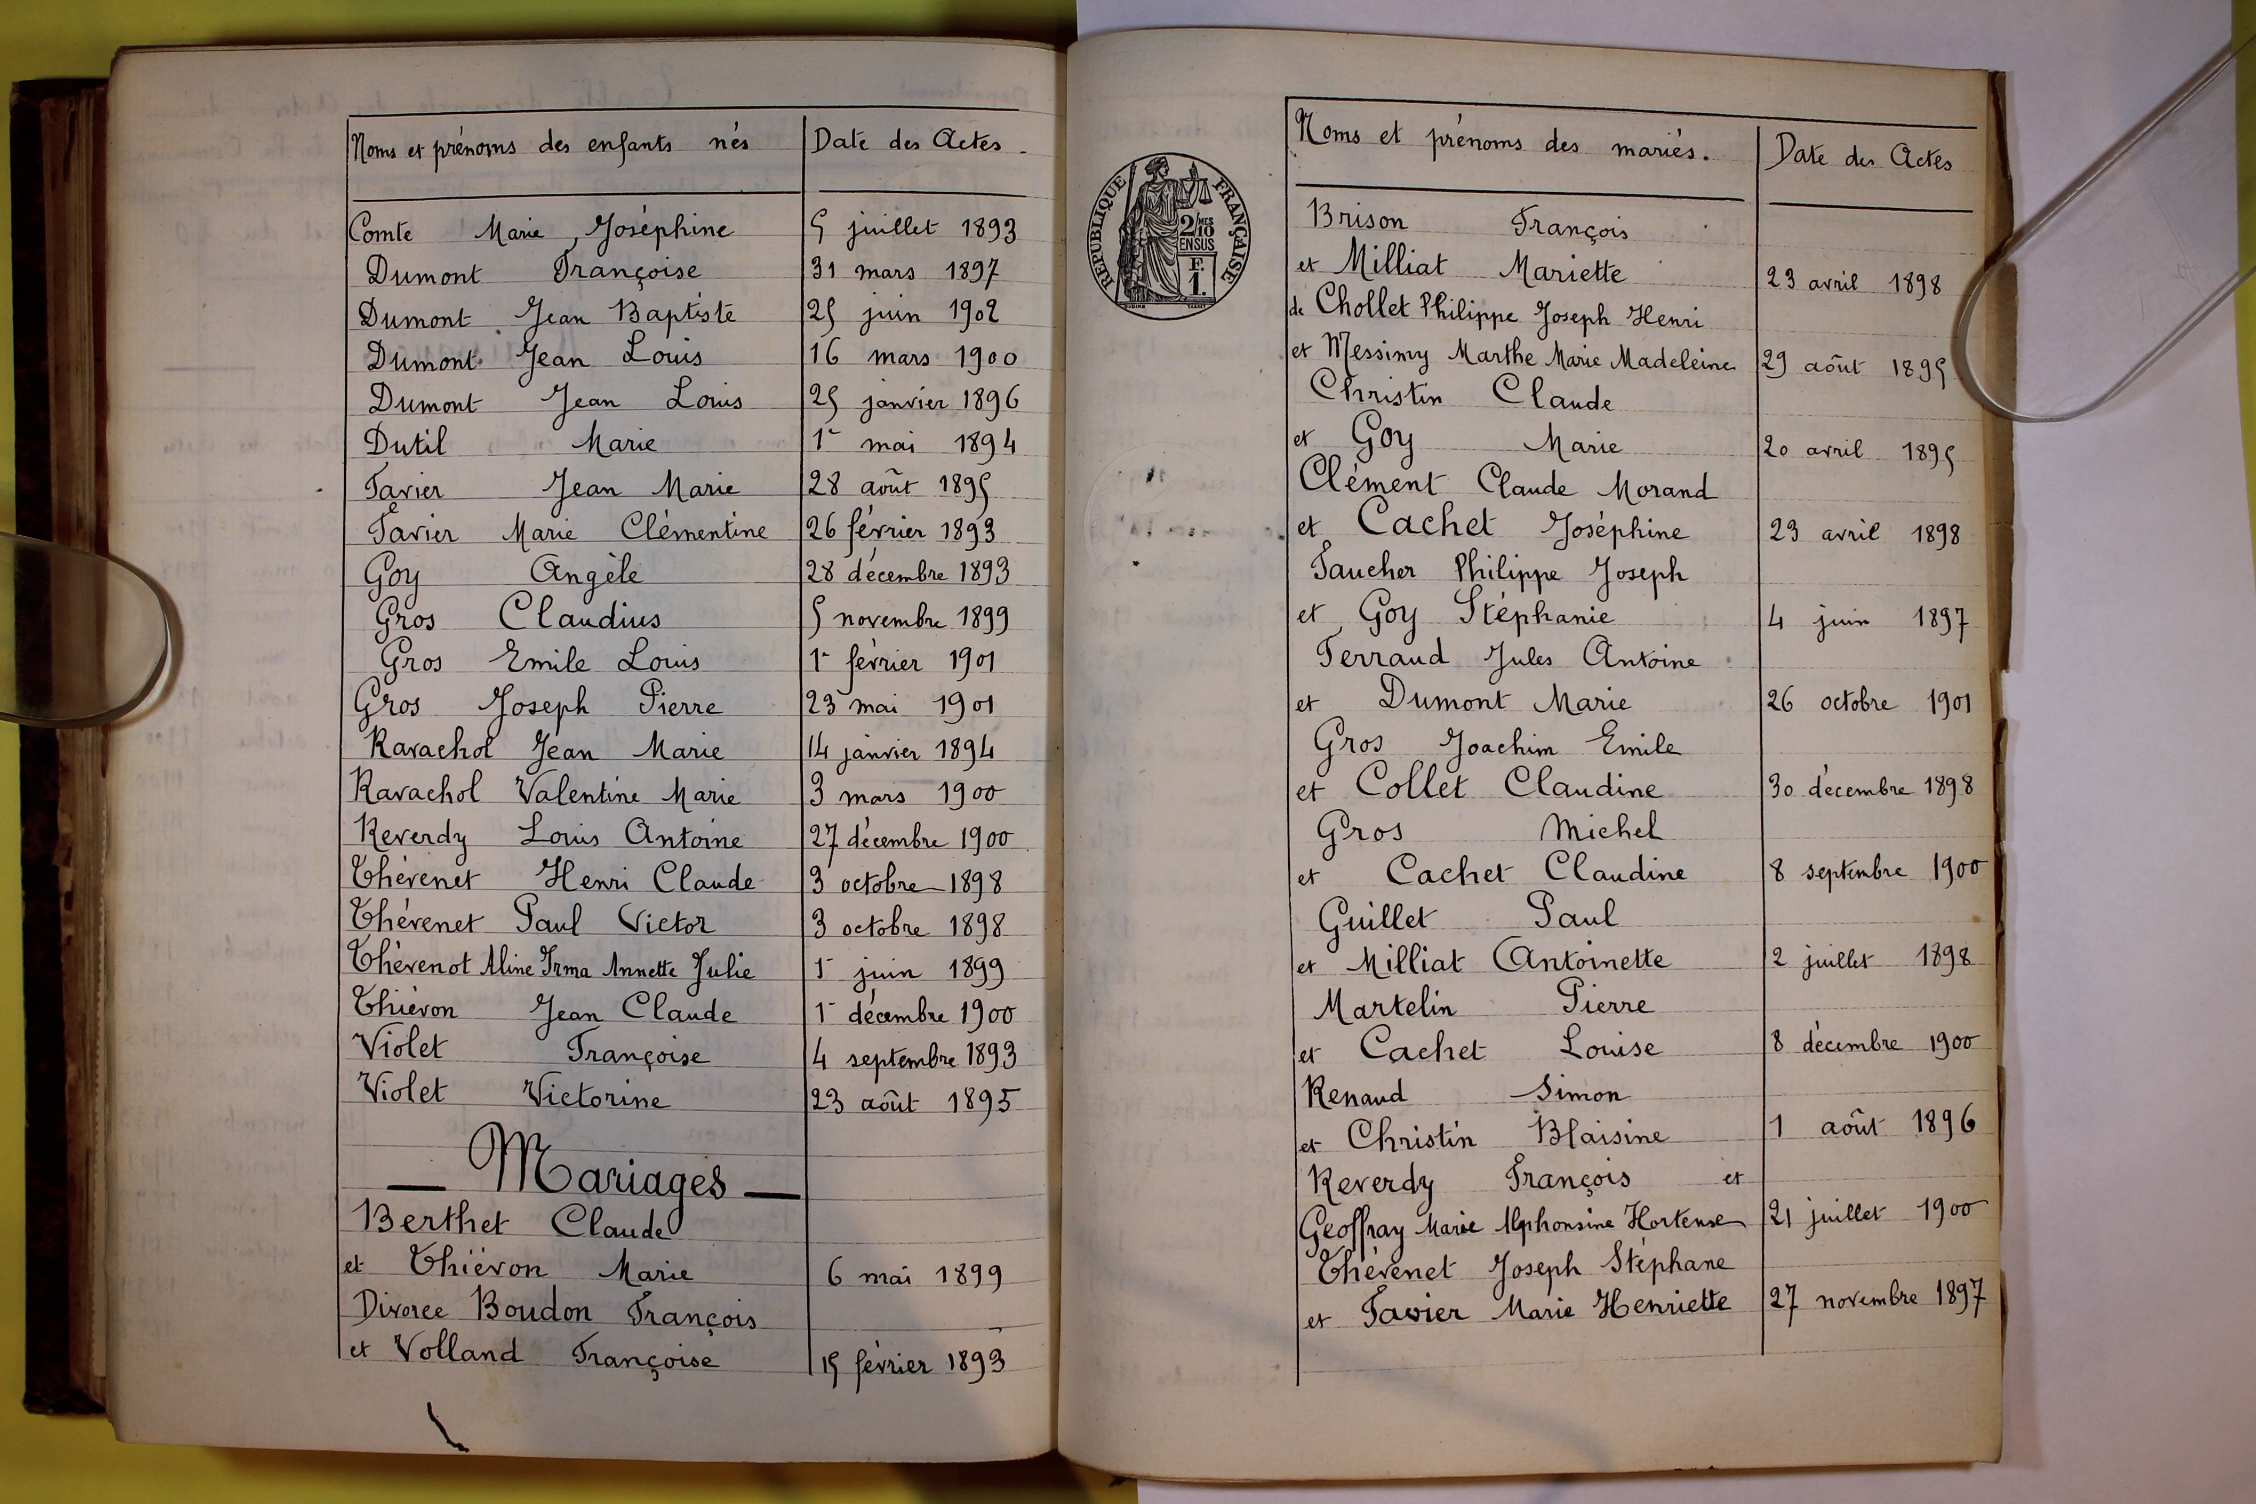 Noms et prénoms des enfants nés Date des Actes.
Comte Marie Joséphine 5 juillet 1893
Dumont Françoise 31 mars 1897
Dumont Jean Baptiste 25 juin 1902
Dumont Jean Louis 16 mars 1900
Dumont Jean Louis 25 janvier 1896
Dutil Marie 1r mai 1894
Favier Jean Marie 28 août 1895
Favier Marie Clémentine 26 février 1893
Goy Angèle 28 décembre 1893
Gros Claudius 5 novembre 1899
Gros Emile Louis 1r février 1901
Gros Joseph Pierre 23 mai 1901
Ravachol Jean Marie 14 janvier 1894
Ravachol Valentine Marie 3 mars 1900
Reverdy Louis Antoine 27 décembre 1900
Thévenet Henri Claude 3 octobre 1898
Thévenet Paul Victor 3 octobre 1898
Thévenot Aline Irma Annette Julie 1r juin 1899
Thiévon Jean Claude 1r décembre 1900
Violet Françoise 4 septembre 1893
Violet Victorine 23 août 1895
— Mariages —
Berthet Claude
et Thiévon Marie 6 mai 1899
Divorce Boudon François
et Volland Françoise 15 février 1893
RÉPUBLIQUE FRANÇAISE
2/10 MES
EN SUS
F.
1.
Noms et prénoms des mariés. Date des Actes
Brison François
et Milliat Mariette 23 avril 1898
de Chollet Philippe Joseph Henri
et Messimy Marthe Marie Madeleine 29 août 1895
Christin Claude
et Goy Marie 20 avril 1895
Clément Claude Morand
et Cachet Joséphine 23 avril 1898
Faucher Philippe Joseph
et Goy Stéphanie 4 juin 1897
Ferraud Jules Antoine
et Dumont Marie 26 octobre 1901
Gros Joachim Emile
et Collet Claudine 30 décembre 1898
Gros Michel
et Cachet Claudine 8 septembre 1900
Guillet Paul
et Milliat Antoinette 2 juillet 1898
Martelin Pierre
et Cachet Louise 8 décembre 1900
Renaud Simon
et Christin Blaisine 1 août 1896
Reverdy François et
Geoffray Marie Alphonsine Hortense 21 juillet 1900
Thévenet Joseph Stéphane
et Favier Marie Henriette 27 novembre 1897